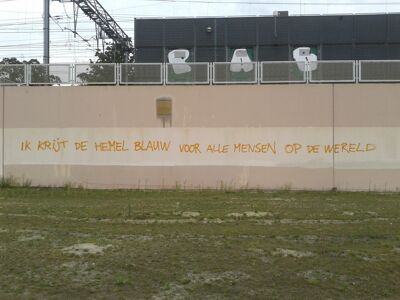 IK KRIJT DE HEMEL BLAUW VOOR ALLE MENSEN OP DE WERELD